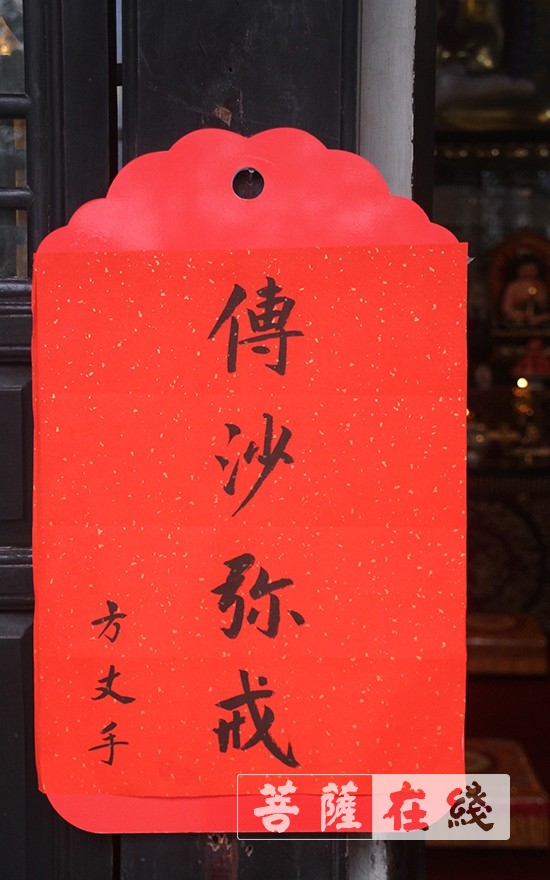 傳沙弥戒
方丈手
菩薩在綫